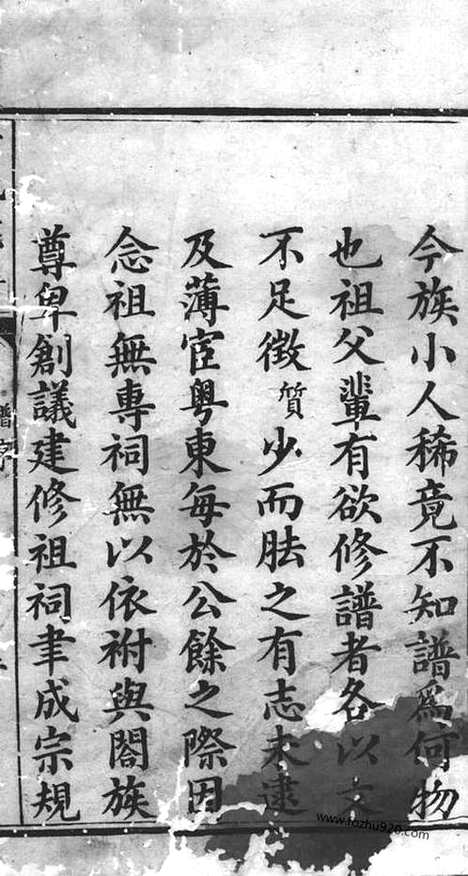 今族小人稀竟不知譜為何物
也祖父輩有欲修譜者各以文
不足徴質少而胠之有志未逮
及薄宦粤東每於公餘之際因
念祖無專祠無以依祔與閤族
尊卑創議建修祖祠聿成宗規
譜序
www.fozhu920.com